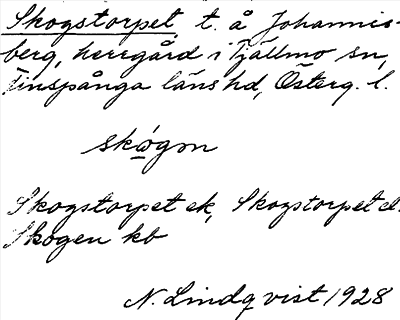 Skogstorpet, t. å Johannis-
berg, herrgård i Tjällmo sn,
Finspånga läns hd, Österg. l.
skógɷn
Skogstorpet ek, Skogstorpet el.
Skogen kb
N. Lindqvist 1928